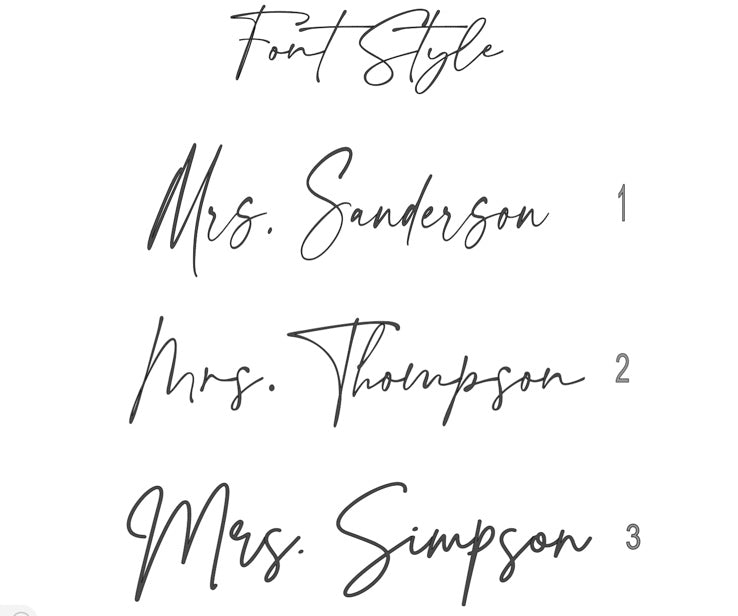 Font Style
Mrs. Sanderson 1
Mrs. Thompson 2
Mrs. Simpson 3